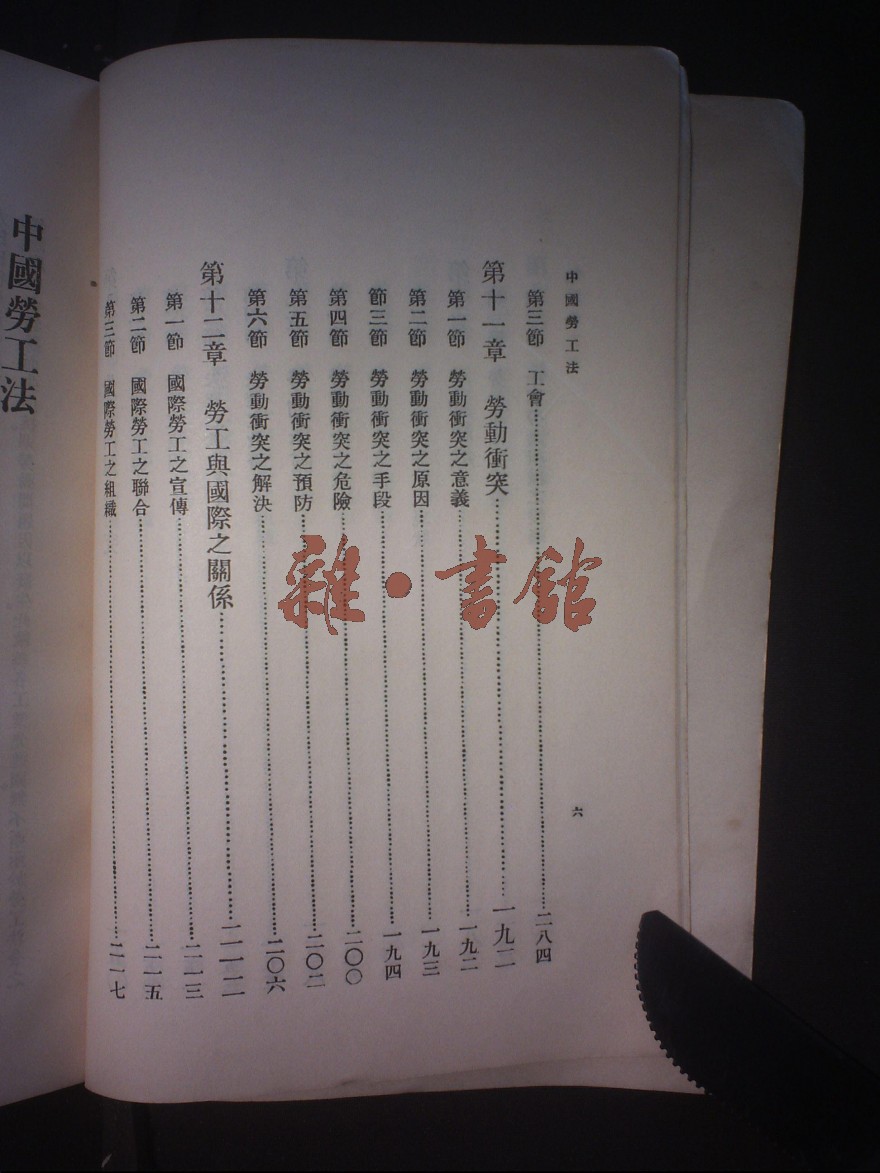 中國勞工法
六
第三節 工會……二八四
第十一章 勞動衝突……一九二
第一節 勞動衝突之意義……一九二
第二節 勞動衝突之原因……一九三
節三節 勞動衝突之手段……一九四
第四節 勞動衝突之危險……二〇〇
第五節 勞動衝突之預防……二〇二
第六節 勞動衝突之解決……二〇六
第十二章 勞工與國際之關係……二一二
第一節 國際勞工之宣傳……二一三
第二節 國際勞工之聯合……二一五
第三節 國際勞工之組織……二一七
中國勞工法
雜·書館